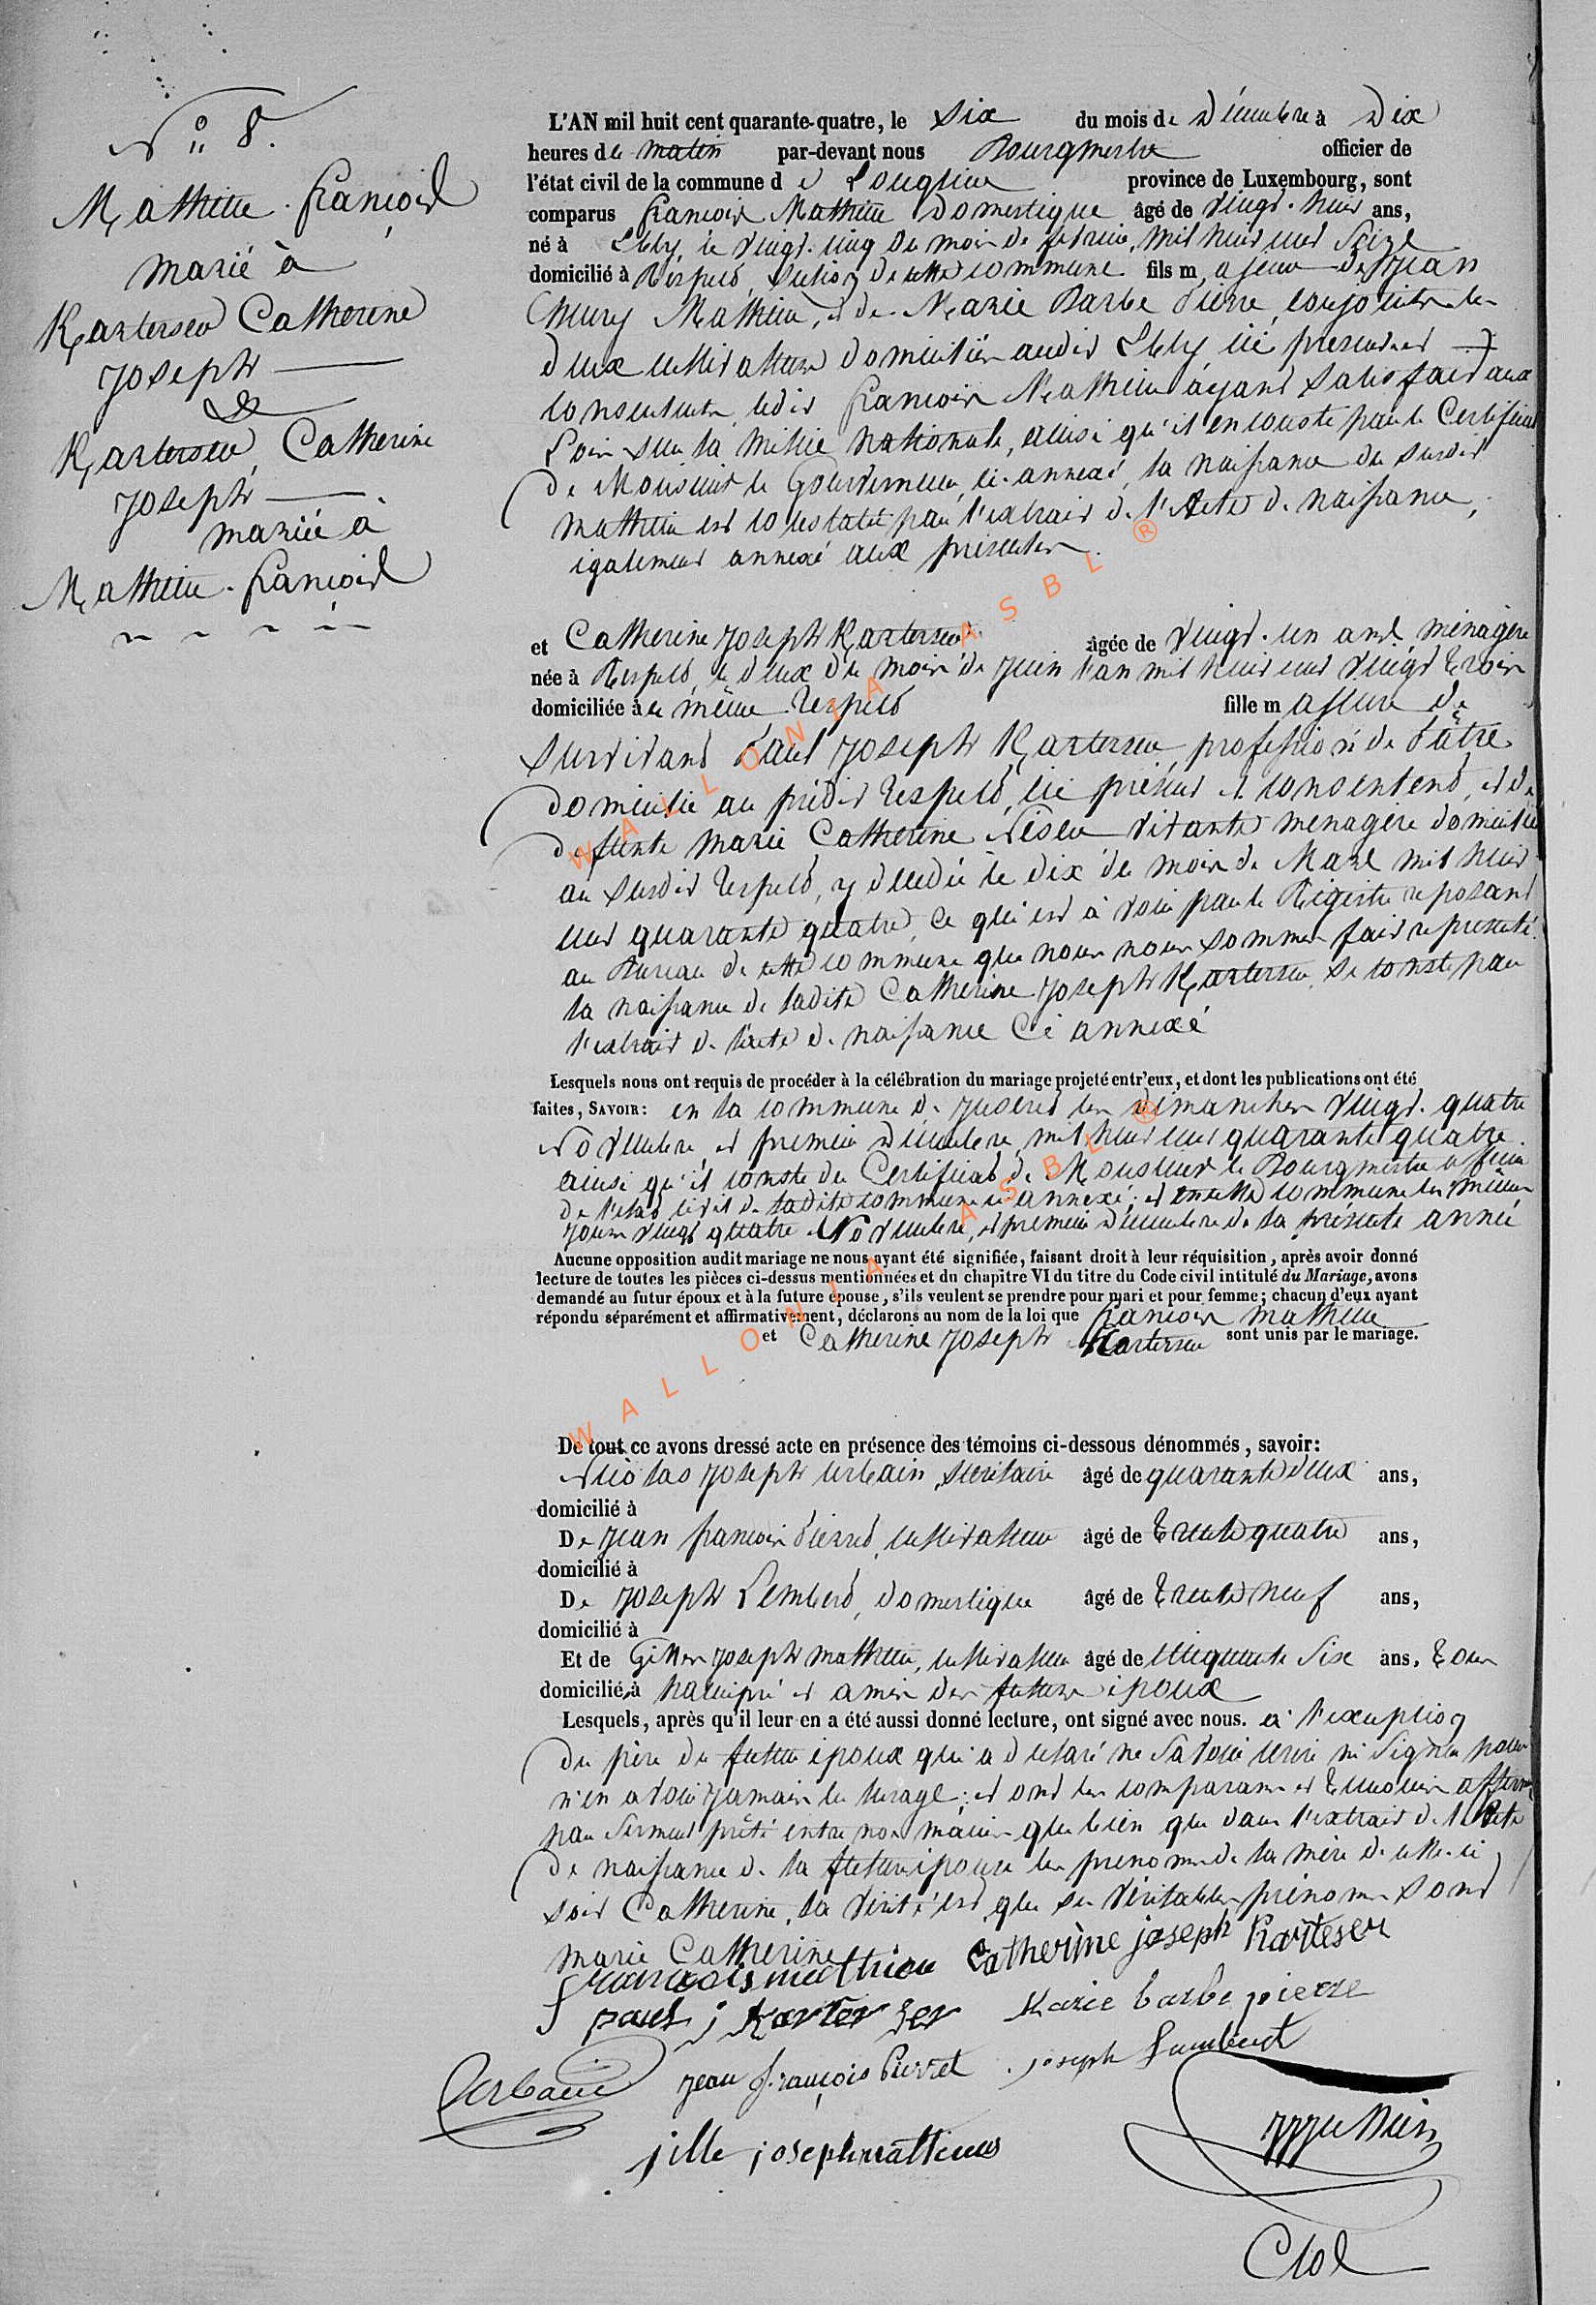 N° 8.
Mathieu François
marié à
Kartersen Catherine
Joseph
&
Kartersen Catherine
Joseph
mariée à
Mathieu François
L'AN mil huit cent quarante-quatre, le Six du mois de Décembre à Dix
heures du matin par-devant nous Bourgmestre officier de
l'état civil de la commune de Louglier province de Luxembourg, sont
comparus François Mathieu domestique âgé de vingt-huit ans,
né à Ebly, le vingt-cinq du mois de février, mil huit cent Seize
domicilié à Respelt, Section de cette commune fils majeur de Jean
Mathieu, et de Marie Barbe Pierre, conjoints
deux cultivateurs domiciliés audit Ebly ici présents et
consentants, ledit François Mathieu ayant satisfait aux
Loix sur la milice nationale, ainsi qu'il en conste par le Certificat
de Monsieur le Gouverneur, ci-annexé, la naissance du susdit
Mathieu est constatée par l'extrait de l'Acte de naissance,
également annexé aux présentes.
et Catherine Joseph Kartersen âgée de vingt-un ans, ménagère
née à Respelt, le deux du mois de Juin l'an mil huit cent vingt trois
domiciliée à le même Respelt fille majeure de
survivant Paul Joseph Kartersen, profession de Pâtre
domicilié au prédit Respelt, ici présent et consentent, et de
défunte Marie Catherine Nisen vivante ménagère domiciliée
au susdit Respelt, y décédée le dix du mois de Mars mil huit
cent quarante quatre, ce qui est à voir par le Régistre reposant
au Bureau de cette commune que nous nous sommes fait représenté.
la naissance de ladite Catherine Joseph Kartersen, se conste par
l'extrait de l'acte de naissance ci annexé
Lesquels nous ont requis de procéder à la célébration du mariage projeté entr'eux, et dont les publications ont été
faites, SAVOIR: en la commune de Juseret les dimanches vingt-quatre
Novembre, et premier Décembre, mil huit cent quarante quatre.
ainsi qu'il conste du Certificat de Monsieur le Bourgmestre officier
de l'état civil de ladite commune ci annexé; et en cette commune les mêmes
jours vingt quatre Novembre, et premier Décembre de la présente année
Aucune opposition audit mariage ne nous ayant été signifiée, faisant droit à leur réquisition, après avoir donné
lecture de toutes les pièces ci-dessus mentionnées et du chapitre VI du titre du Code civil intitulé du Mariage, avons
demandé au futur époux et à la future épouse, s'ils veulent se prendre pour mari et pour femme; chacun d'eux ayant
répondu séparément et affirmativement, déclarons au nom de la loi que François Mathieu
et Catherine Joseph Kartersen sont unis par le mariage.
De tout ce avons dressé acte en présence des témoins ci-dessous dénommés, savoir:
Nicolas Joseph Urbain, Secrétaire âgé de quarante deux ans,
domicilié à
De Jean François Pierret, cultivateur âgé de trente quatre ans,
domicilié à
De Joseph Lembert, domestique âgé de trente neuf ans,
domicilié à
Et de Gilles Joseph Mathieu, cultivateur âgé de cinquante Six ans, tous
domiciliés à et amis des futurs époux
Lesquels, après qu'il leur en a été aussi donné lecture, ont signé avec nous. à l'exception
du père du futur époux qui a déclaré ne savoir écrire ni signer pour
n'en avoir jamais eu l'usage; et ont les comparans et témoins affirmé
par serment prêté entre nos mains que bien que dans l'extrait de l'Acte
de naissance de la future épouse les prénoms de la mère de celle-ci
soit Catherine, la vérité est que ses véritables prénoms sont
Marie Catherine
François mathieu Catherine joseph Karteser
paul j Karterser Marie barbe pierre
Urbain jean françois Pierret joseph Lambert
jille joseph mattieus
Clos
WALLONIA ASBL ®
WALLONIA ASBL ®